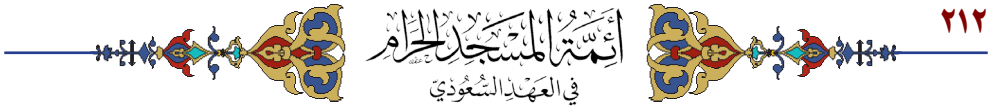 ٢١٢
أَئِمَّةُ المَسْجِدِ الحَرَامِ
فِي العَهْدِ السُّعُودِيّ